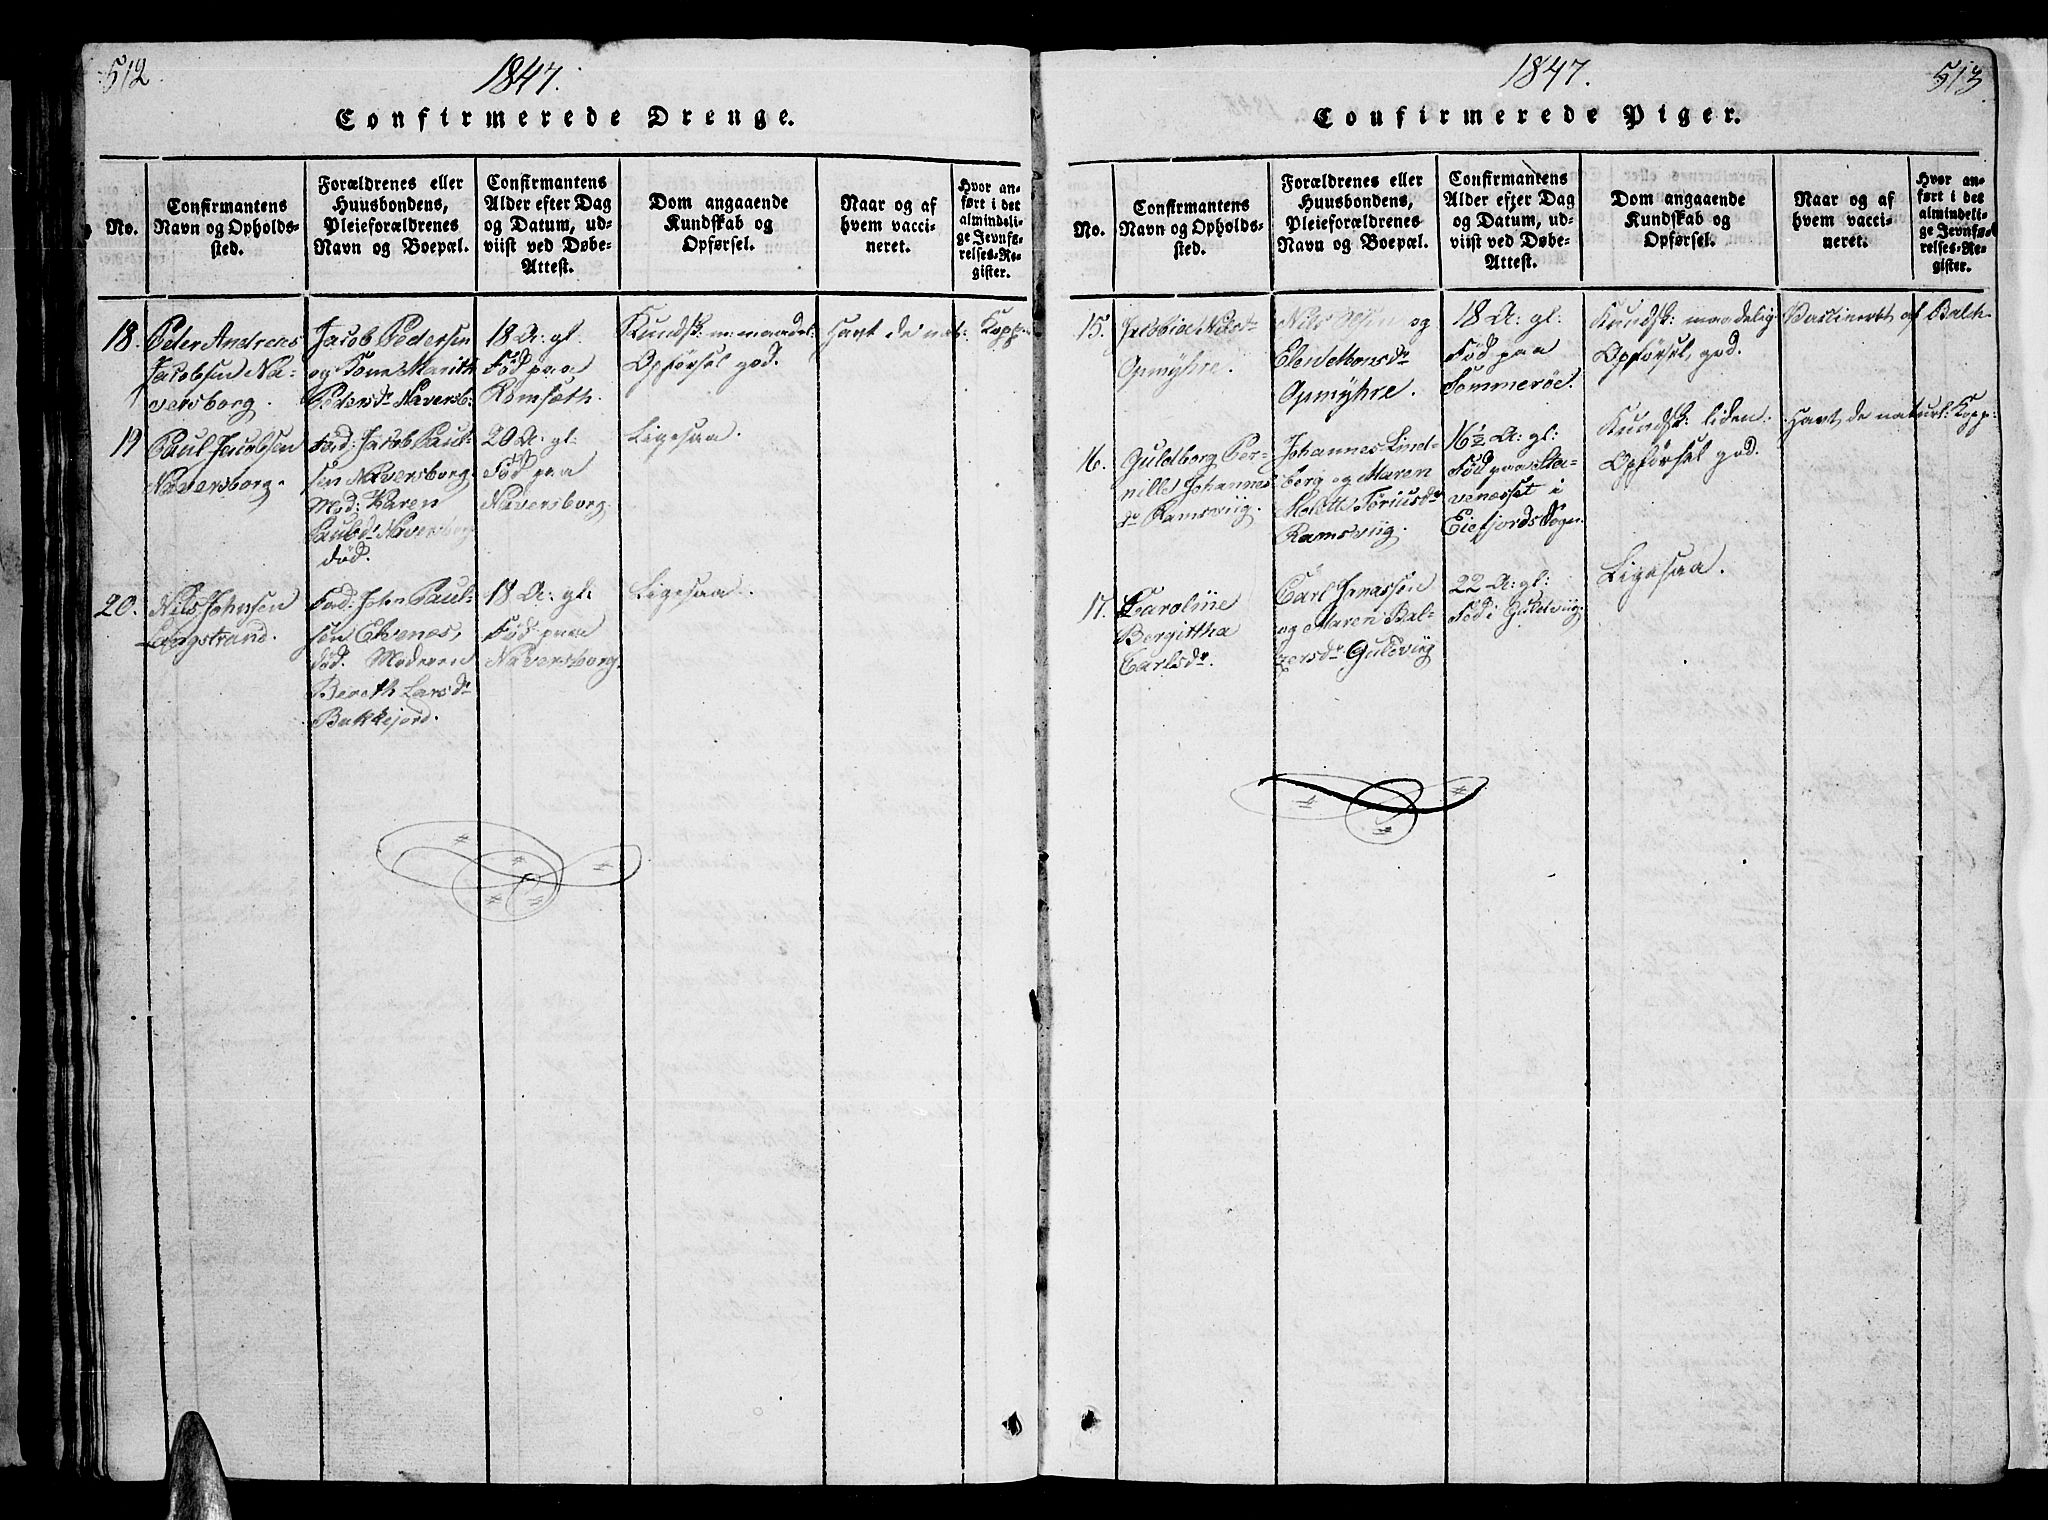 512
1847.
Confirmerede Drenge.
No.
Confirmantens
Navn og Opholds-
sted.
Forældrenes eller
Huusbondens,
Pleieforældrenes
Navn og Boepæl.
Confirmantens
Alder efter Dag
og Datum, ud-
viist ved Døbe-
Attest.
Dom angaaende
Kundskab og
Opførsel.
Naar og af
hvem vacci-
neret.
Hvor an-
ført i det
almindeli-
ge Jevnfø-
relses-Re-
gister.
18.
Peter Andreas
Jacobsen Na-
versborg.
Jacob Pedersen
og Marith
Pedersdr Naversb:
18 A: gl.
Fød paa
Romsæth.
Kundsk: m: maadel:
Opførsel god.
Havt de nat: Kopp:
19
Paul Jacobsen
Naversborg.
Fad: Jacob Paul-
sen Naversborg
Mod: Karen
Paulsdr Naversborg
død.
20 A: gl:
Fød paa
Naversborg.
Ligesaa.
20.
Nils Johnsen
Langstrand.
Fad: John Paul-
sen Elvenes,
død. Moderen
Bereth Larsdr
Bakkejord.
18 A: gl:
Fød paa
Naversborg.
Ligesaa.
1847.
513
Confirmerede Piger.
No.
Confirmantens
Navn og Opholds-
sted.
Forældrenes eller
Huusbondens,
Pleieforældrenes
Navn og Boepæl.
Confirmantens
Alder efter Dag
og Datum, ud-
viist ved Døbe-
Attest.
Dom angaaende
Kundskab og
Opførsel.
Naar og af
hvem vacci-
neret.
Hvor an-
ført i det
almindeli-
ge Jevnfø-
relses-Re-
gister.
15.
Nilsdr
Opmyhre.
Nils og
Elen Monsdr
Opmyhre.
18 A: gl:
Fød paa
Sommerøe.
Kundsk: maadelig
Opførsel god.
Vaccineret af Balch-
16.
Guldborg Per-
nille Johannes-
dr Ramsviig.
Johannes Lind-
berg og Maren
Ramsviig.
16½ A: gl:
Fød paa Sta-
venesset i
Eiefjords Sogn
Kundsk: liden.
Opførsel god.
Havt de naturl: Kopp:
17.
Caroline
Bergitha
Carlsdr.
Carl Jonassen
og Maren Bal-
zersdr Guldviig
22 A: gl:
Fød i Guldviig
Ligesaa.